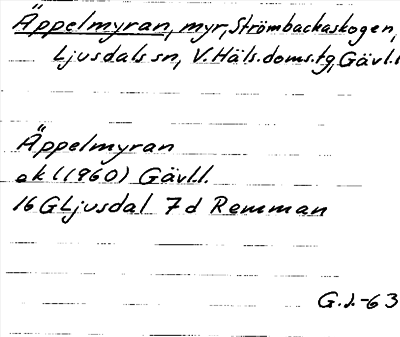 Äppelmyran, myr, Strömbackaskogen,
Ljusdals sn, V. Häls. doms.tg, Gävl.l
Äppelmyran
ek (1960) Gävl.l.
16 G Ljusdal 7 d Remman
G.J.-63